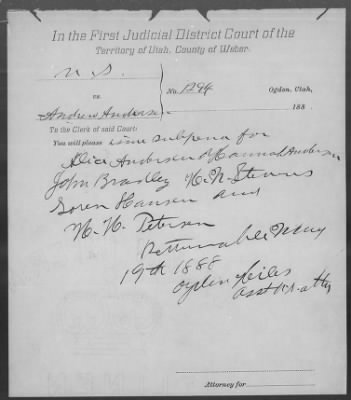 In the First Judicial District Court of the
Territory of Utah, County of Weber.
U. S.
vs.
No. 1294
Ogden, Utah,
Andrew Anderson
188
To the Clerk of said Court:
You will please issue subpena for
Alice Anderson Hannah Anderson
John Bradley N. N. Stevens
Soren Hansen and
Petersen
Retturnable May
19th 1888
Ogden Hiles
Asst atty
Attorney for